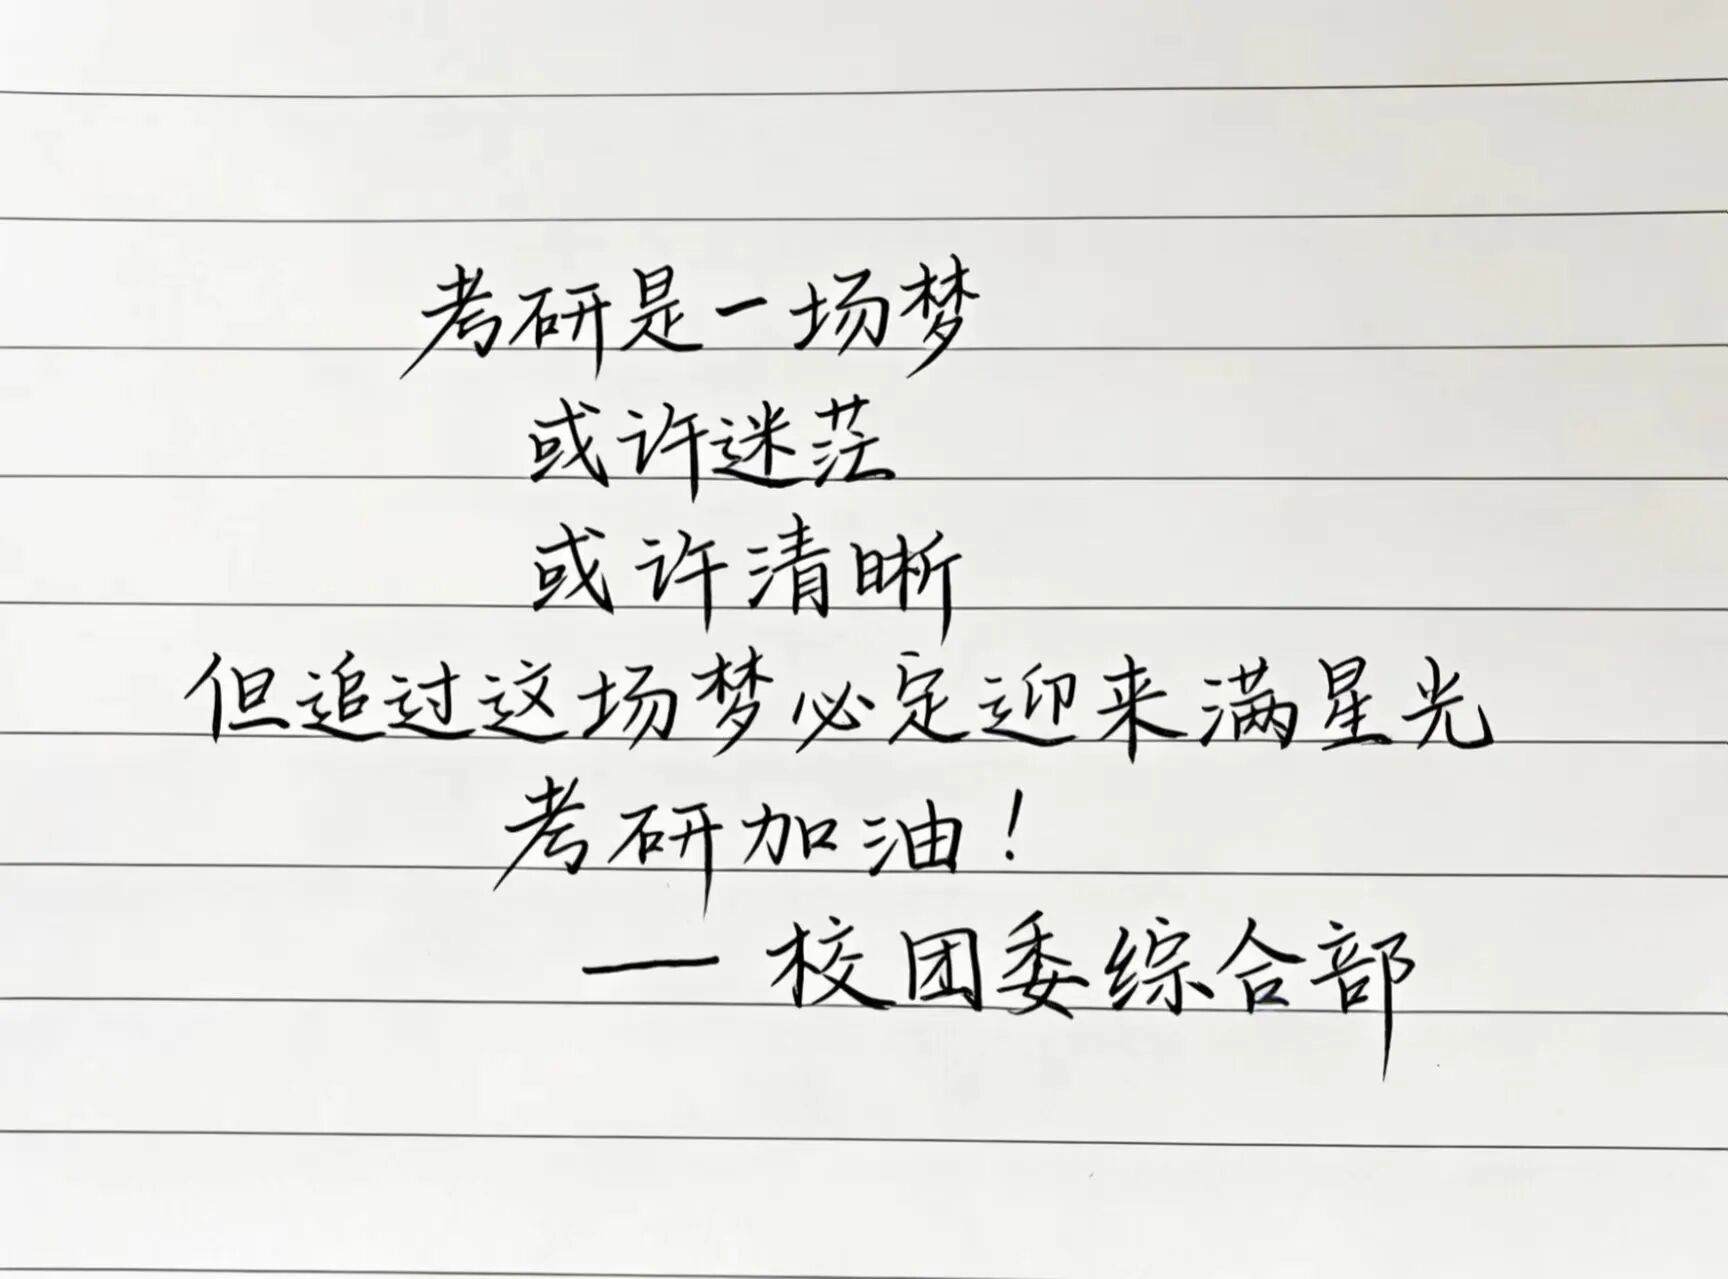 考研是一场梦
或许迷茫
或许清晰
但追过这场梦必定迎来满星光
考研加油！
——校团委综合部